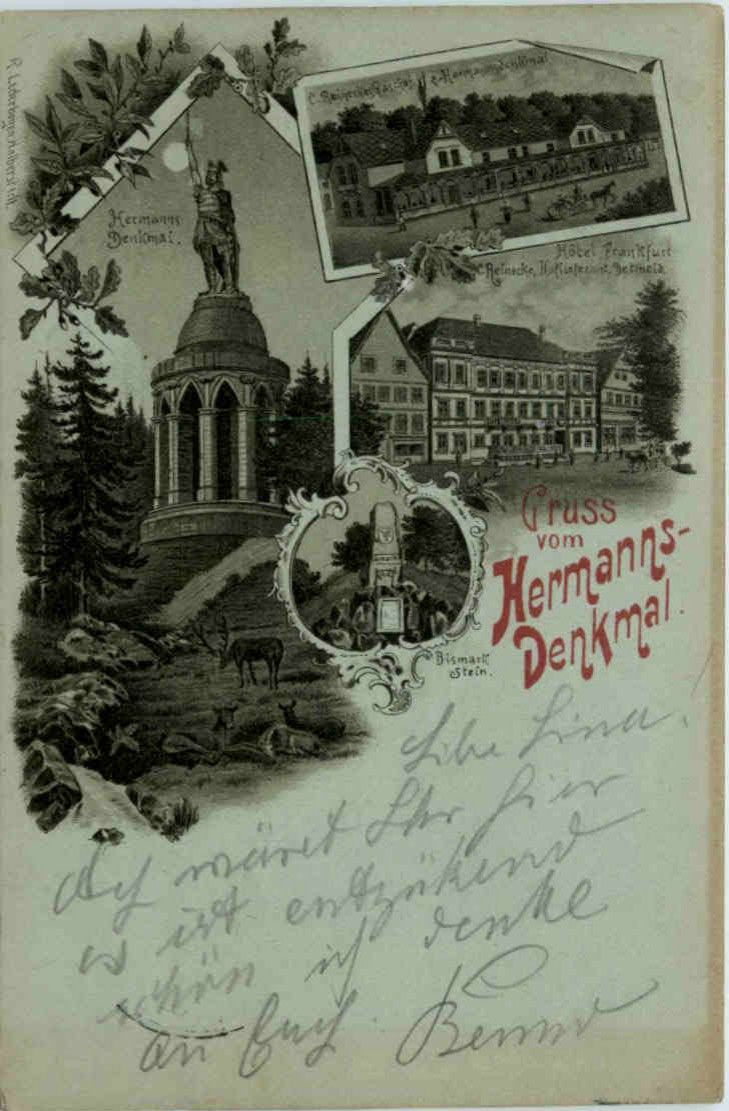 R. Lederbogen, Halberstadt.
Hermanns
Denkmal.
C. Reinecke, z. Hermannsdenkmal
Hôtel Frankfurt
C. Reinecke, Hoflieferant, Detmold.
Gruss
vom
Hermanns-
Denkmal.
Bismark
Stein.
Libe Lina!
Ach wäret Ihr hier
es ist entzükend
schön ich denke
an Euch. Benno